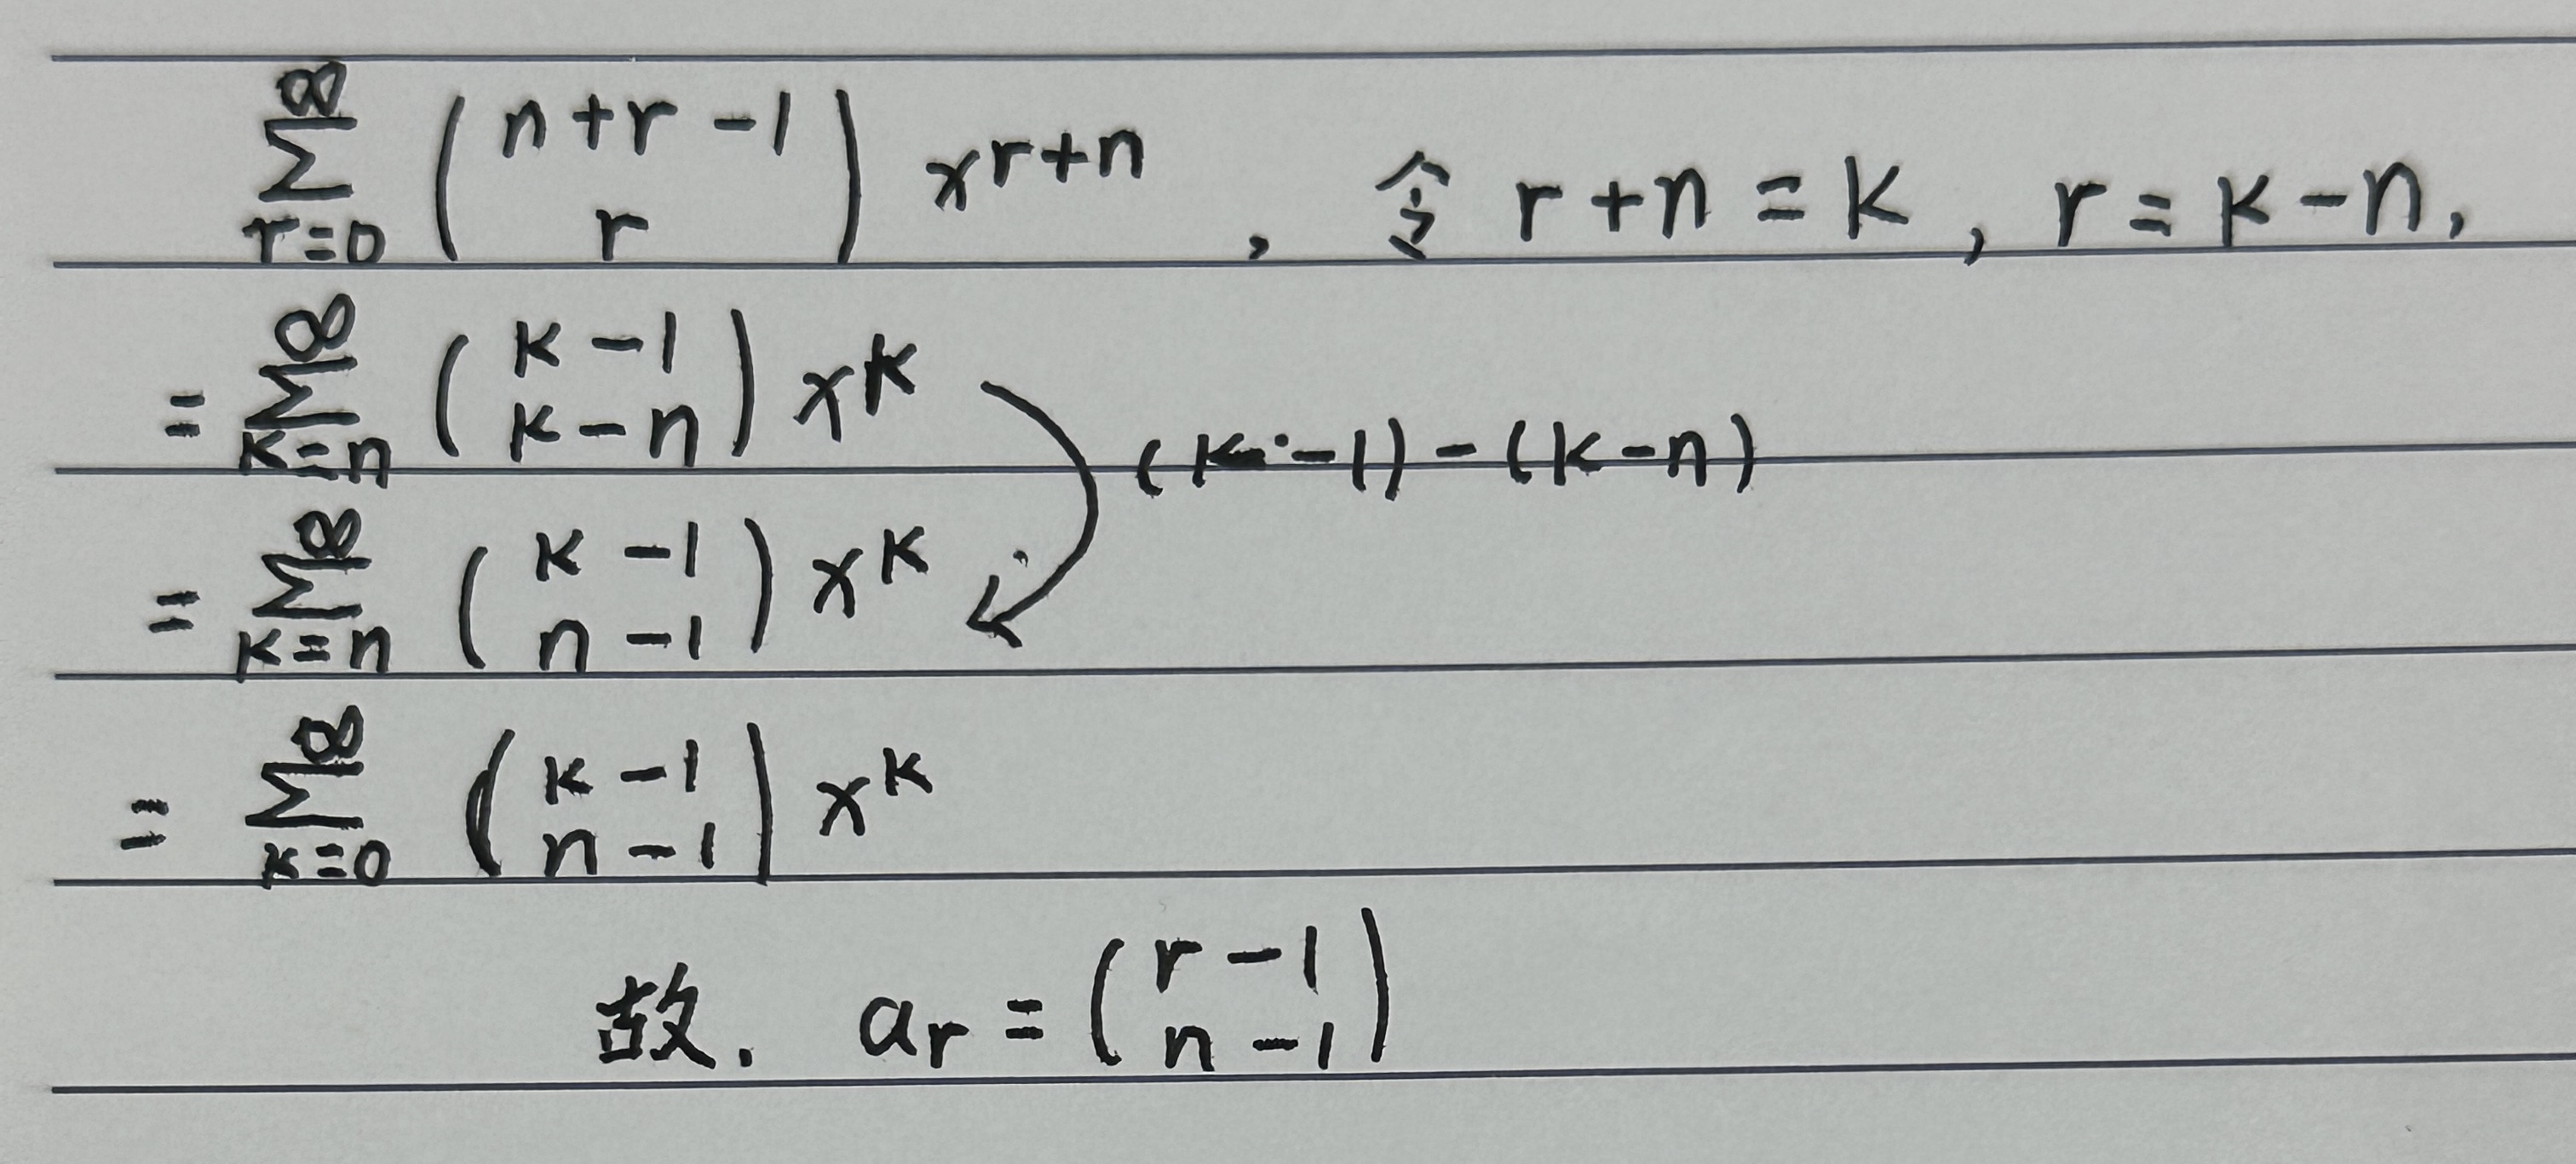 $\sum_{r=0}^{\infty} \binom{n+r-1}{r} x^{r+n}$ , 令 r+n=k, r=k-n,
$= \sum_{k=n}^{\infty} \binom{k-1}{k-n} x^k$
(k-1)-(k-n)
$= \sum_{k=n}^{\infty} \binom{k-1}{n-1} x^k$
$= \sum_{k=0}^{\infty} \binom{k-1}{n-1} x^k$
故. $a_r = \binom{r-1}{n-1}$